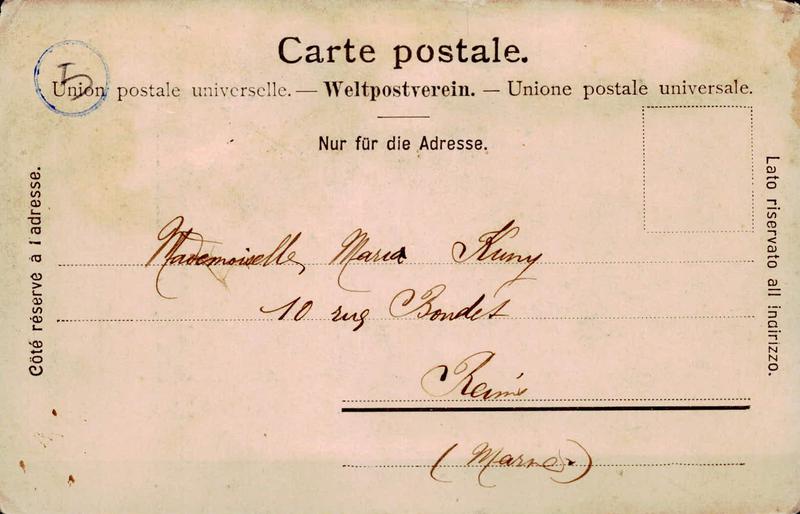 Carte postale.
5
Union postale universelle. — Weltpostverein. — Unione postale universale.
Nur für die Adresse.
Côté réservé à l'adresse.
Lato riservato all indirizzo.
Mademoiselle Maria Kuny
10 rue Bondet
Reims
(Marne)